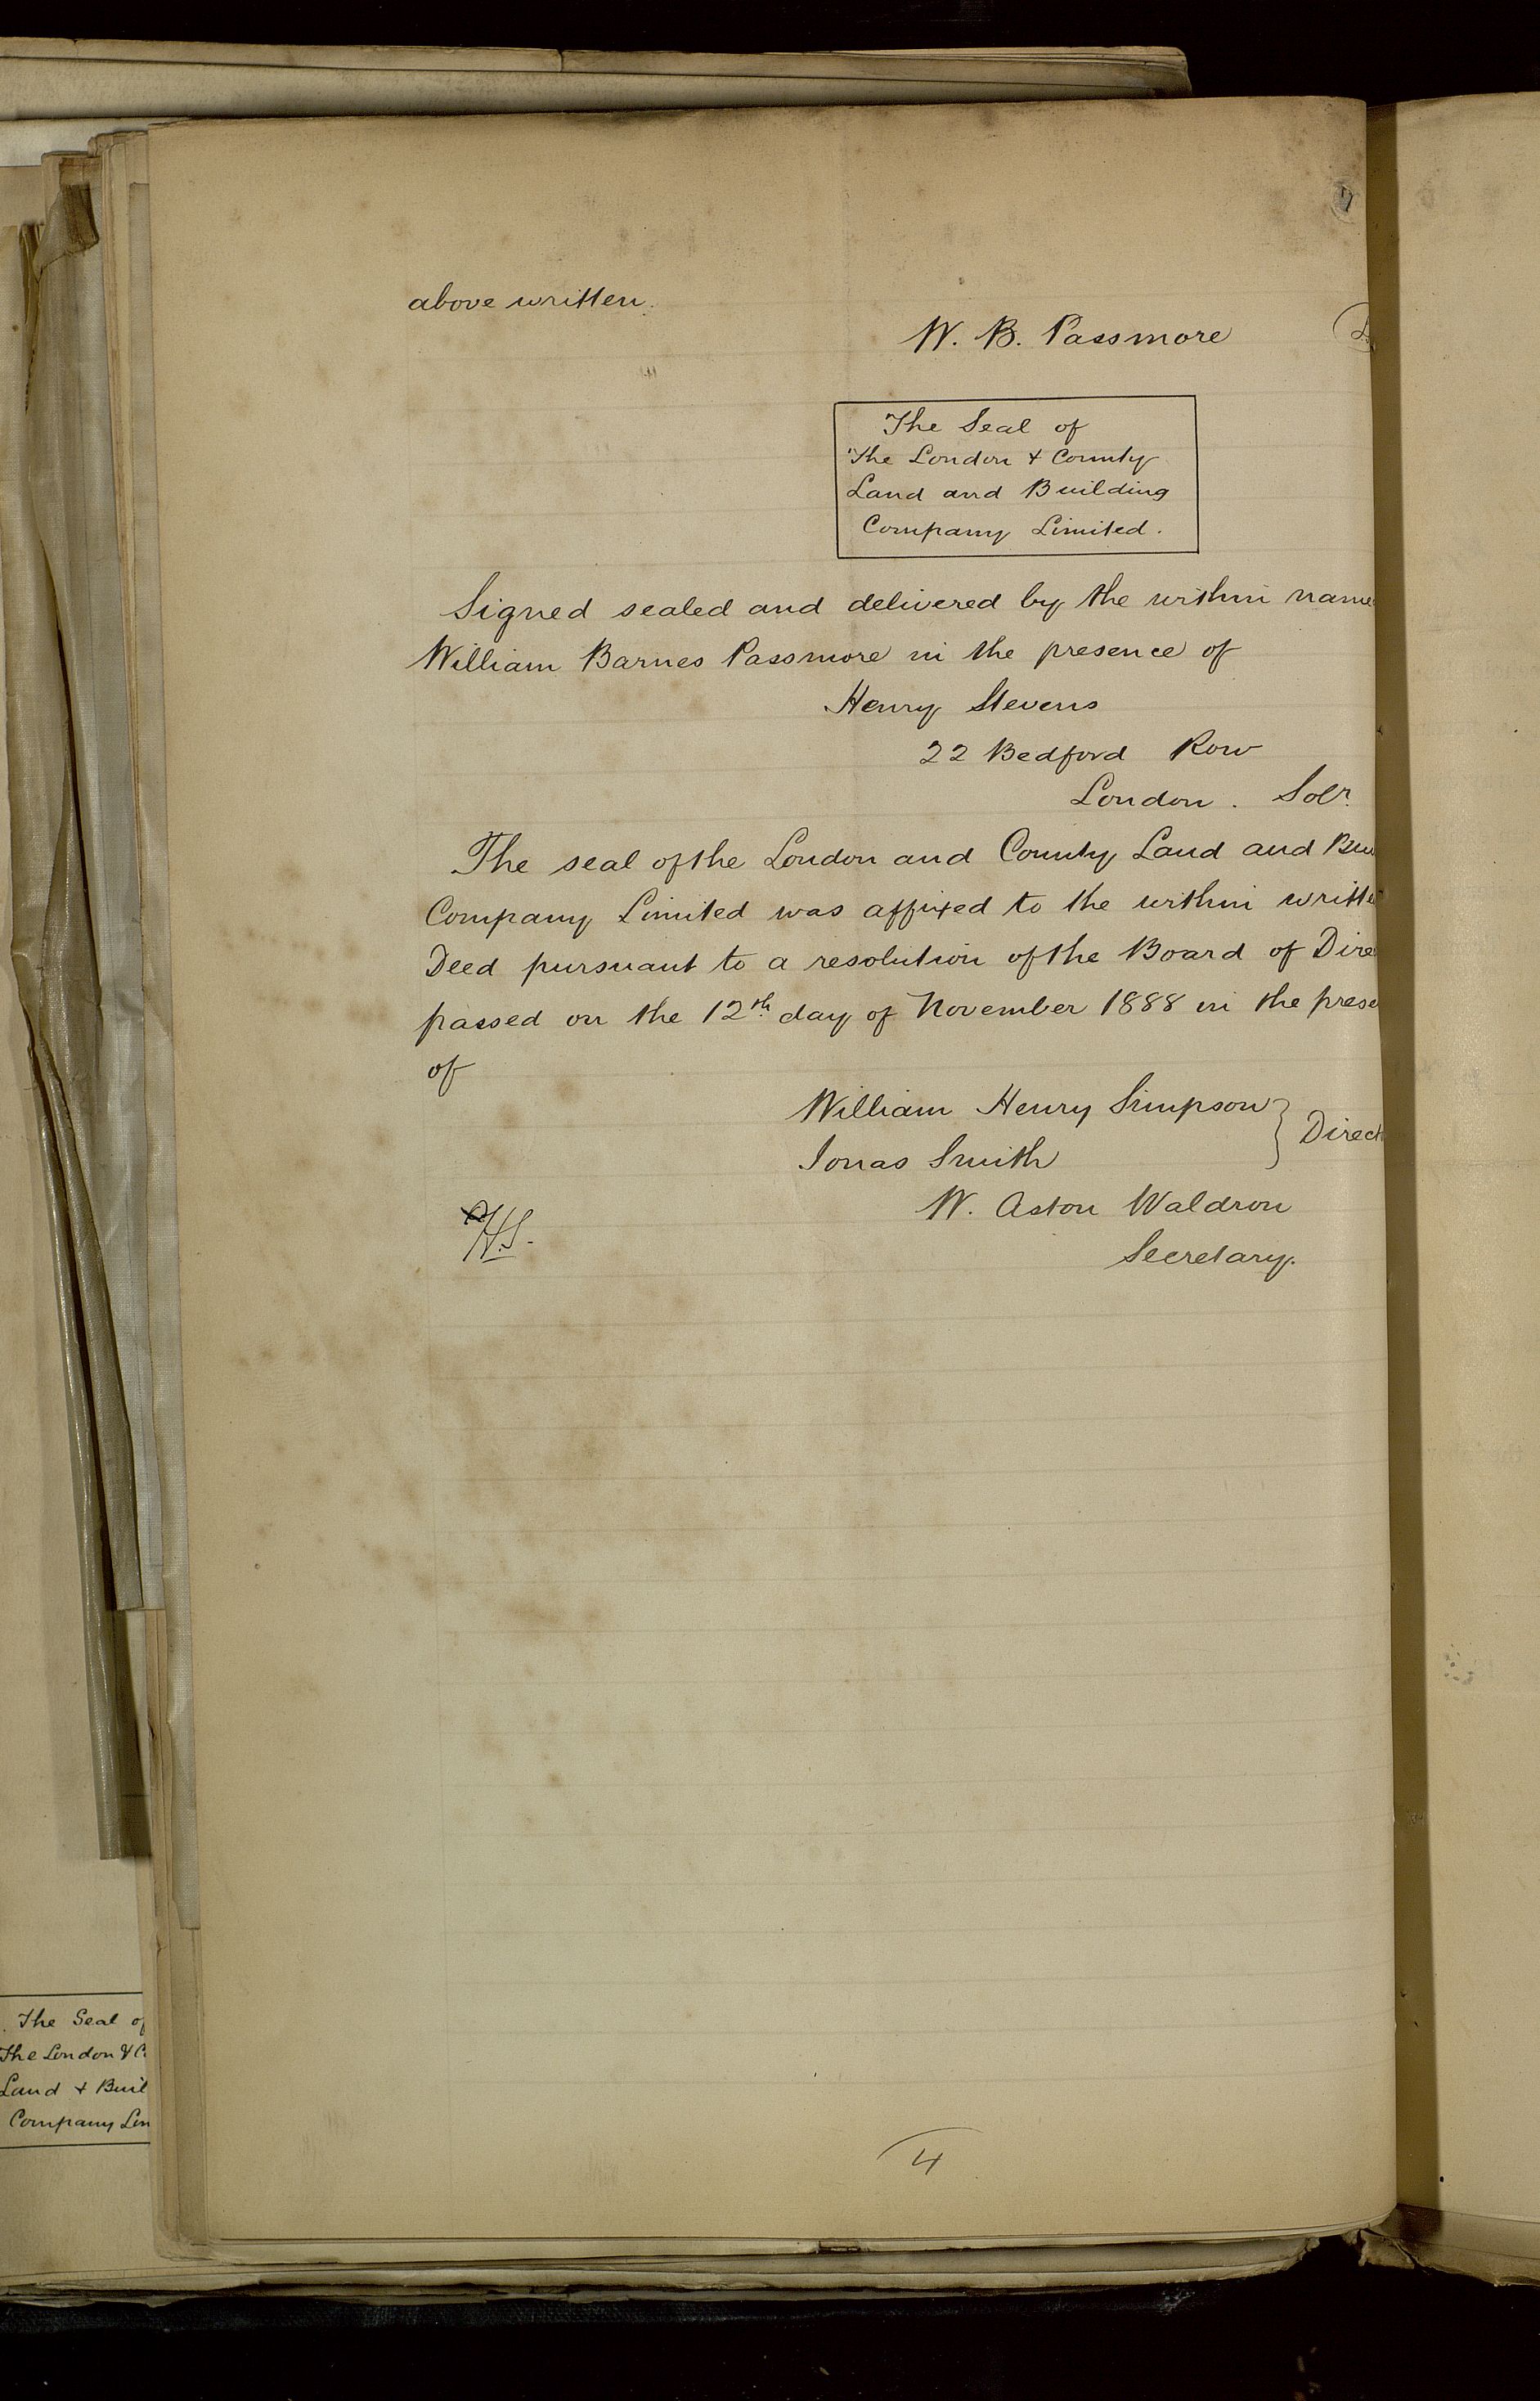 above written.
W. B. Passmore
The Seal of
The London & County
Land and Building
Company Limited.
Signed sealed and delivered by the within name
William Barnes Passmore in the presence of
Henry Stevens
22 Bedford Row
London. Solr.
The seal of the London and County Land and Bui
Company Limited was affixed to the within writte
Deed pursuant to a resolution of the Board of Dire
passed on the 12th. day of November 1888 in the prese
of
William Henry Simpson } Direct
Jonas Smith
W. Aston Waldron
Secretary.
H.S.
4
The Seal of
The London & C
Land & Buil
Company Lim